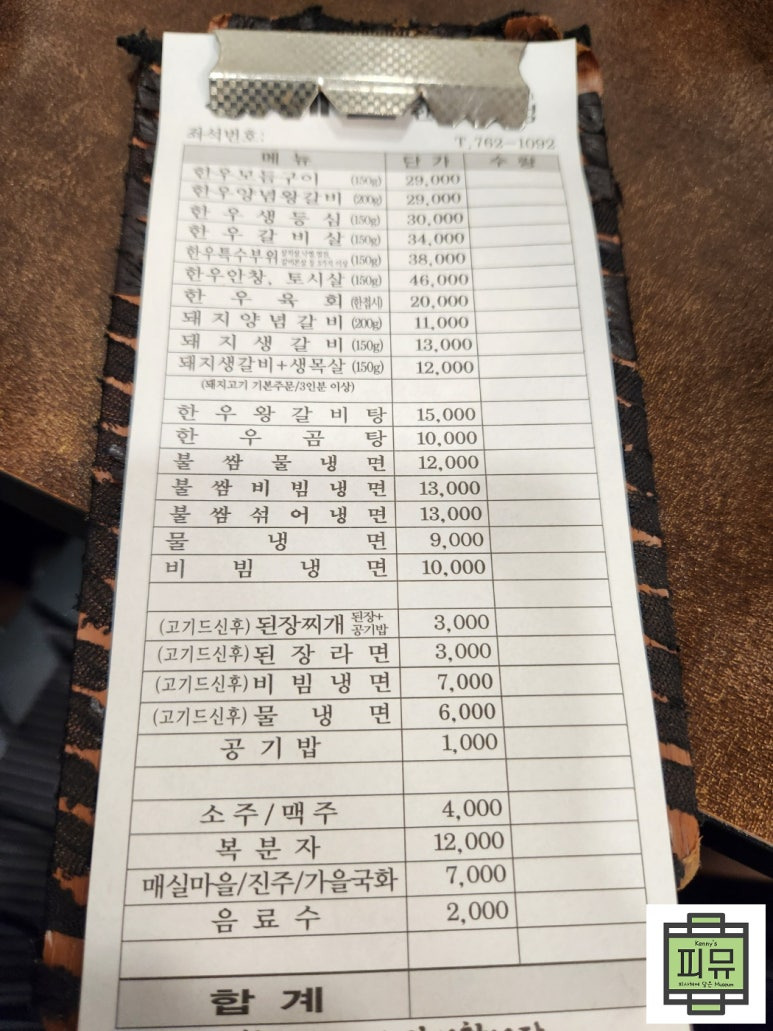 좌석번호:
T. 762-1092
메 뉴 단 가 수 량
한우모듬구이 (150g) 29,000
한우양념왕갈비 (200g) 29,000
한 우 생 등 심 (150g) 30,000
한 우 갈 비 살 (150g) 34,000
한우특수부위 (150g) 38,000
한우안창, 토시살 (150g) 46,000
한 우 육 회 (한접시) 20,000
돼지양념갈비 (200g) 11,000
돼 지 생 갈 비 (150g) 13,000
돼지생갈비+생목살 (150g) 12,000
(돼지고기 기본주문/3인분 이상)
한 우 왕 갈 비 탕 15,000
한 우 곰 탕 10,000
불 쌈 물 냉 면 12,000
불 쌈 비 빔 냉 면 13,000
불 쌈 섞 어 냉 면 13,000
물 냉 면 9,000
비 빔 냉 면 10,000
(고기드신후) 된장찌개 된장+공기밥 3,000
(고기드신후) 된 장 라 면 3,000
(고기드신후) 비 빔 냉 면 7,000
(고기드신후) 물 냉 면 6,000
공 기 밥 1,000
소 주 / 맥 주 4,000
복 분 자 12,000
매실마을/진주/가을국화 7,000
음 료 수 2,000
합 계
Kenny's
피뮤
피사체에 담은 Museum